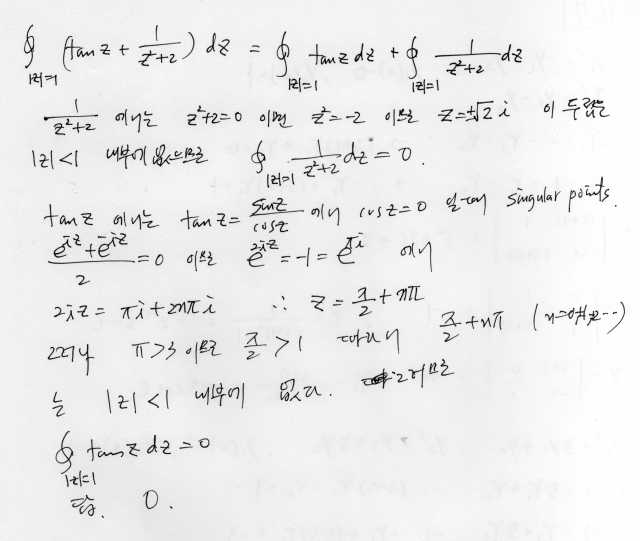 ∮_{|z|=1} (tan z + 1/(z²+2)) dz = ∮_{|z|=1} tan z dz + ∮_{|z|=1} 1/(z²+2) dz
1/(z²+2) 에서는 z²+2=0 이면 z²=-2 이므로 z=±√2 i 이 두점은
|z|<1 내부에 없으므로 ∮_{|z|=1} 1/(z²+2) dz = 0.
tan z 에서는 tan z = sin z/cos z 에서 cos z=0 일 때 singular points.
(e^{iz}+e^{-iz})/2 = 0 이므로 e^{2iz} = -1 = e^{πi} 에서
2iz = πi+2nπi ∴ z = π/2 + nπ
그러나 π>3 이므로 π/2 > 1 따라서 π/2 + nπ
는 |z|<1 내부에 없다. 그러므로
∮_{|z|=1} tan z dz = 0
답. 0.